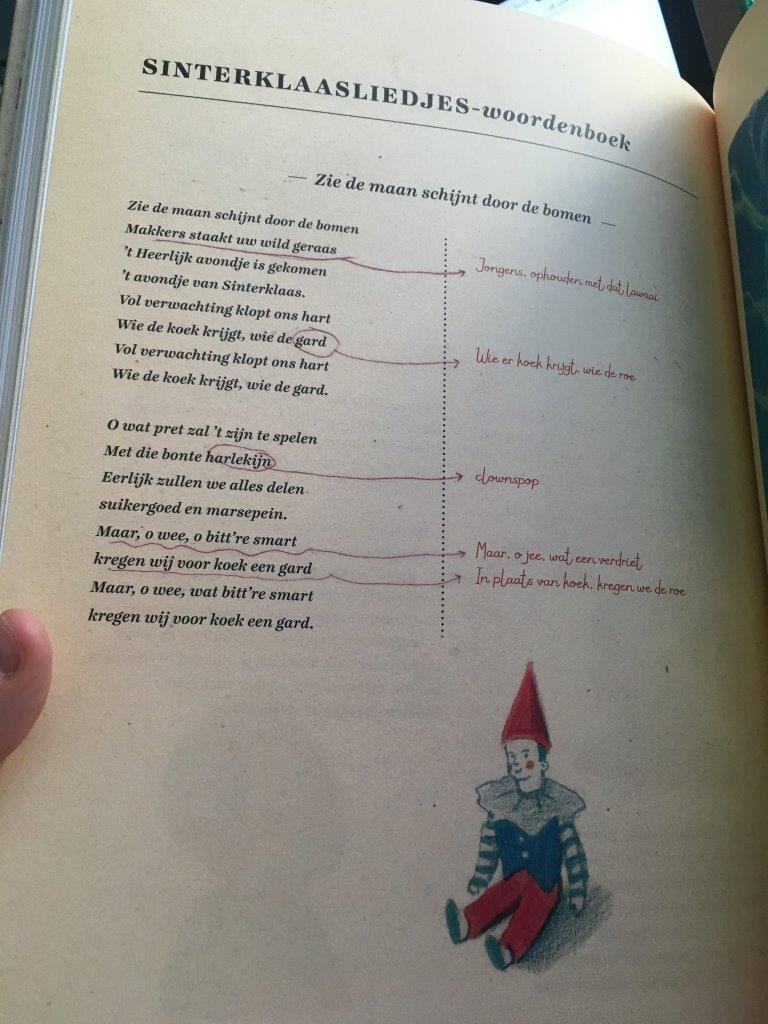 SINTERKLAASLIEDJES-woordenboek
— Zie de maan schijnt door de bomen —
Zie de maan schijnt door de bomen
Makkers staakt uw wild geraas
Jongens, ophouden met dat lawaai
't Heerlijk avondje is gekomen
't avondje van Sinterklaas.
Vol verwachting klopt ons hart
Wie de koek krijgt, wie de gard
Wie er koek krijgt, wie de roe
Vol verwachting klopt ons hart
Wie de koek krijgt, wie de gard.
O wat pret zal 't zijn te spelen
Met die bonte harlekijn
clownspop
Eerlijk zullen we alles delen
suikergoed en marsepein.
Maar, o wee, o bitt're smart
Maar, o jee, wat een verdriet
kregen wij voor koek een gard
In plaats van koek, kregen we de roe
Maar, o wee, wat bitt're smart
kregen wij voor koek een gard.